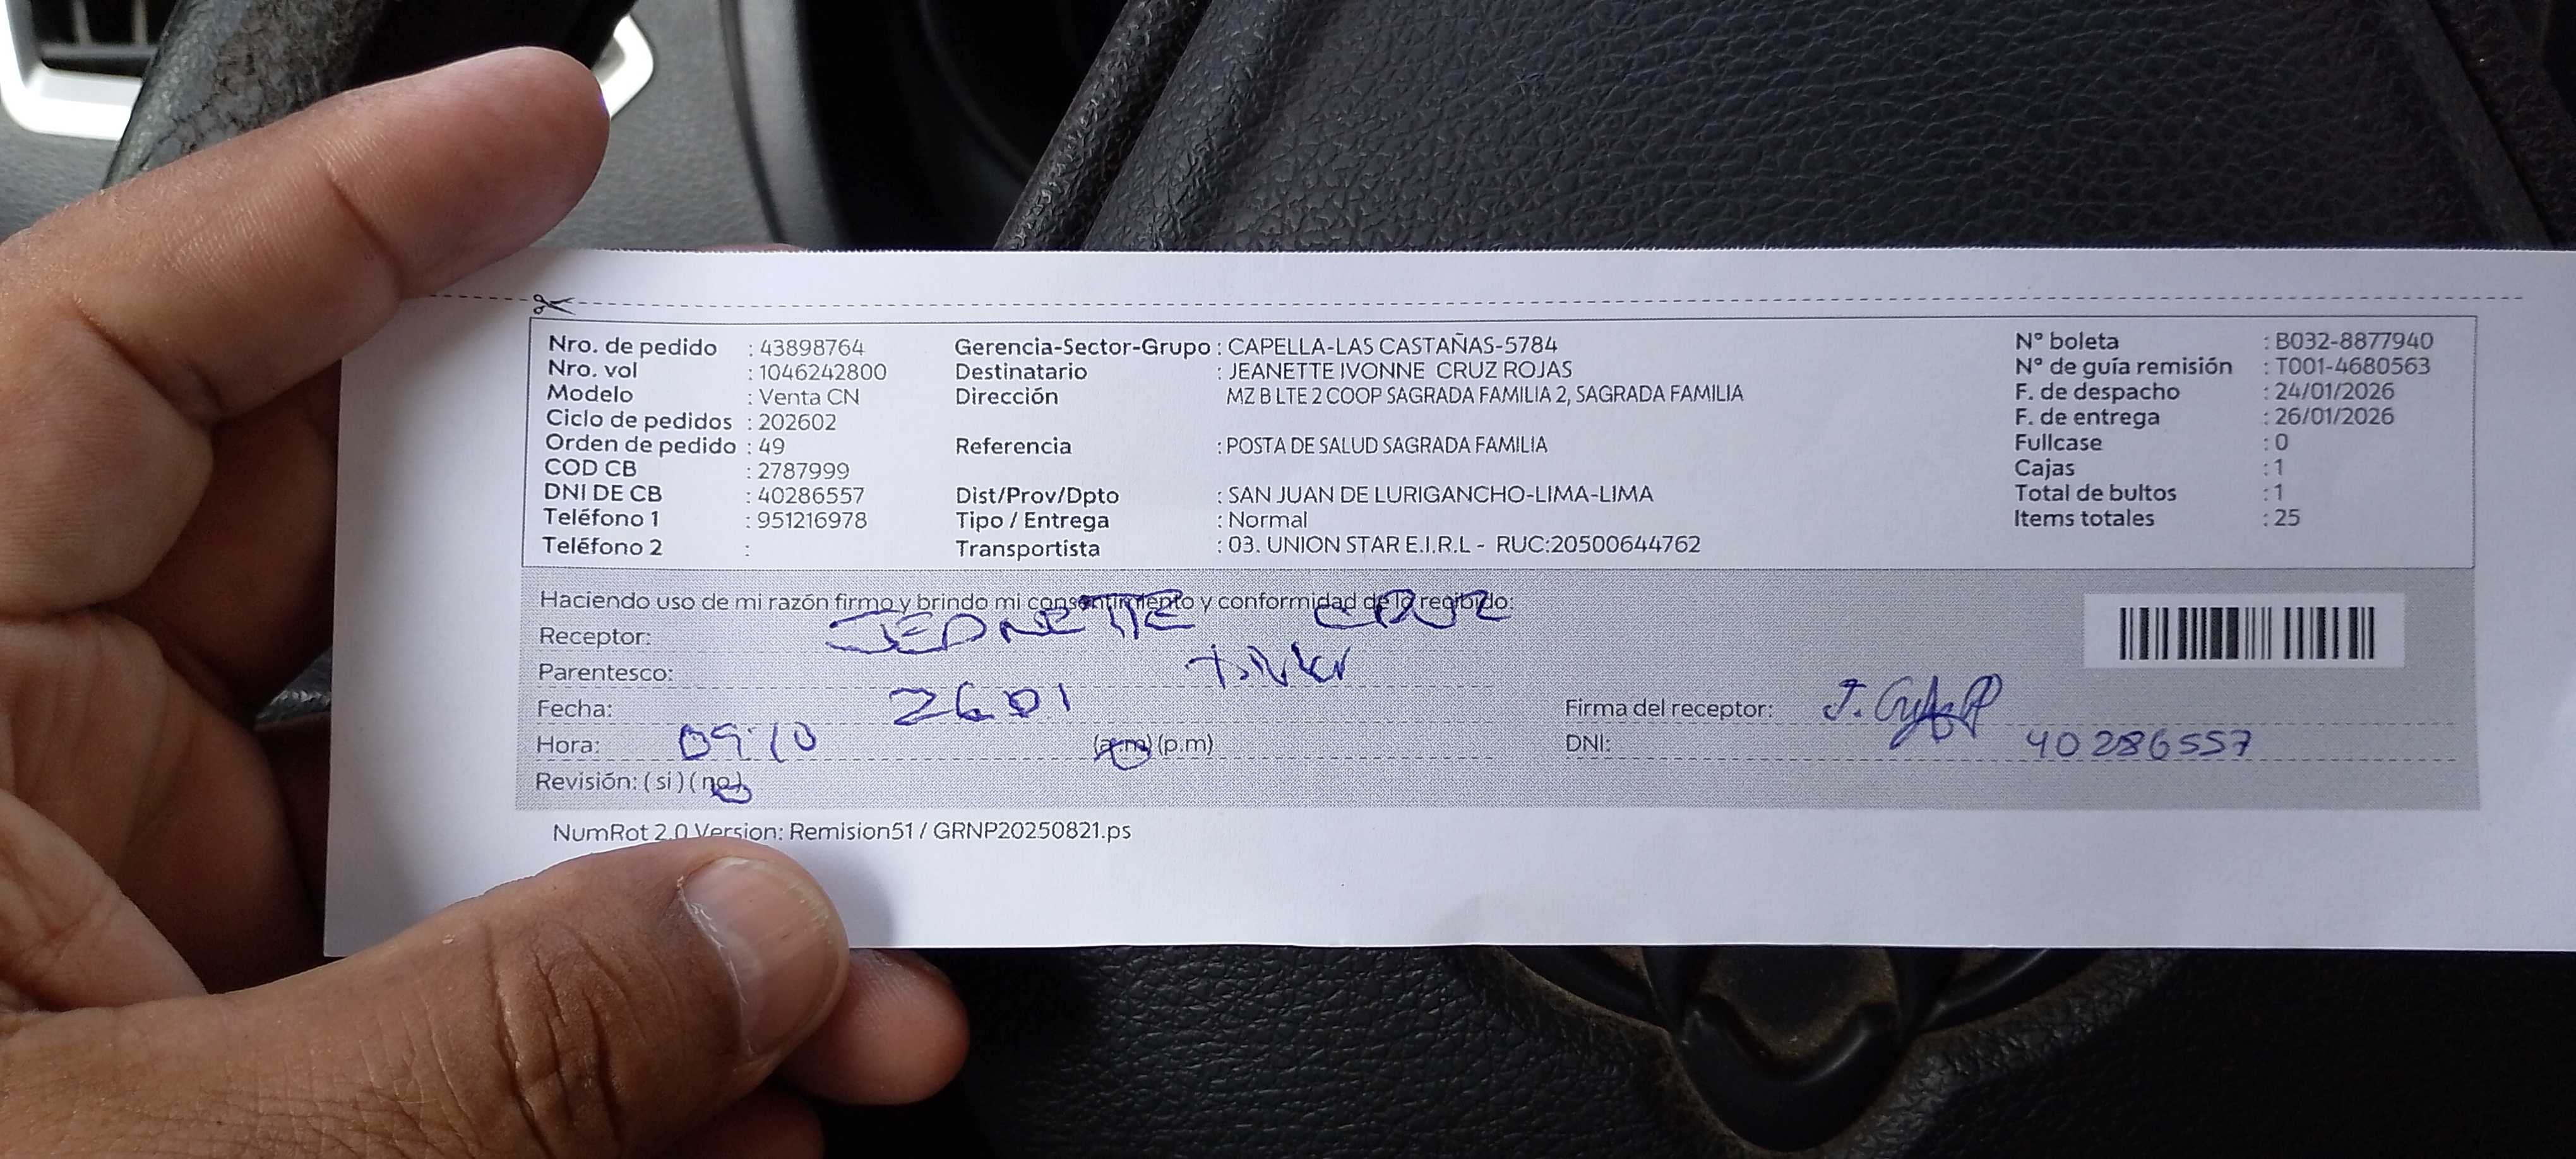 Nro. de pedido : 43898764 Gerencia-Sector-Grupo : CAPELLA-LAS CASTAÑAS-5784 N° boleta : B032-8877940
Nro. vol : 1046242800 Destinatario : JEANETTE IVONNE CRUZ ROJAS N° de guía remisión : T001-4680563
Modelo : Venta CN Dirección MZ B LTE 2 COOP SAGRADA FAMILIA 2, SAGRADA FAMILIA F. de despacho : 24/01/2026
Ciclo de pedidos : 202602 F. de entrega : 26/01/2026
Orden de pedido : 49 Referencia : POSTA DE SALUD SAGRADA FAMILIA Fullcase : 0
COD CB : 2787999 Cajas : 1
DNI DE CB : 40286557 Dist/Prov/Dpto : SAN JUAN DE LURIGANCHO-LIMA-LIMA Total de bultos : 1
Teléfono 1 : 951216978 Tipo / Entrega : Normal Items totales : 25
Teléfono 2 : Transportista : 03. UNION STAR E.I.R.L - RUC:20500644762
Haciendo uso de mi razón firmo y brindo mi consentimiento y conformidad de lo recibido:
Receptor: JEANETTE CRUZ
Parentesco:
Fecha: 26 01 Firma del receptor:
Hora: 09:10 (a.m) (p.m) DNI: 40286557
Revisión: ( si ) ( no )
NumRot 2.0 Version: Remision51 / GRNP20250821.ps